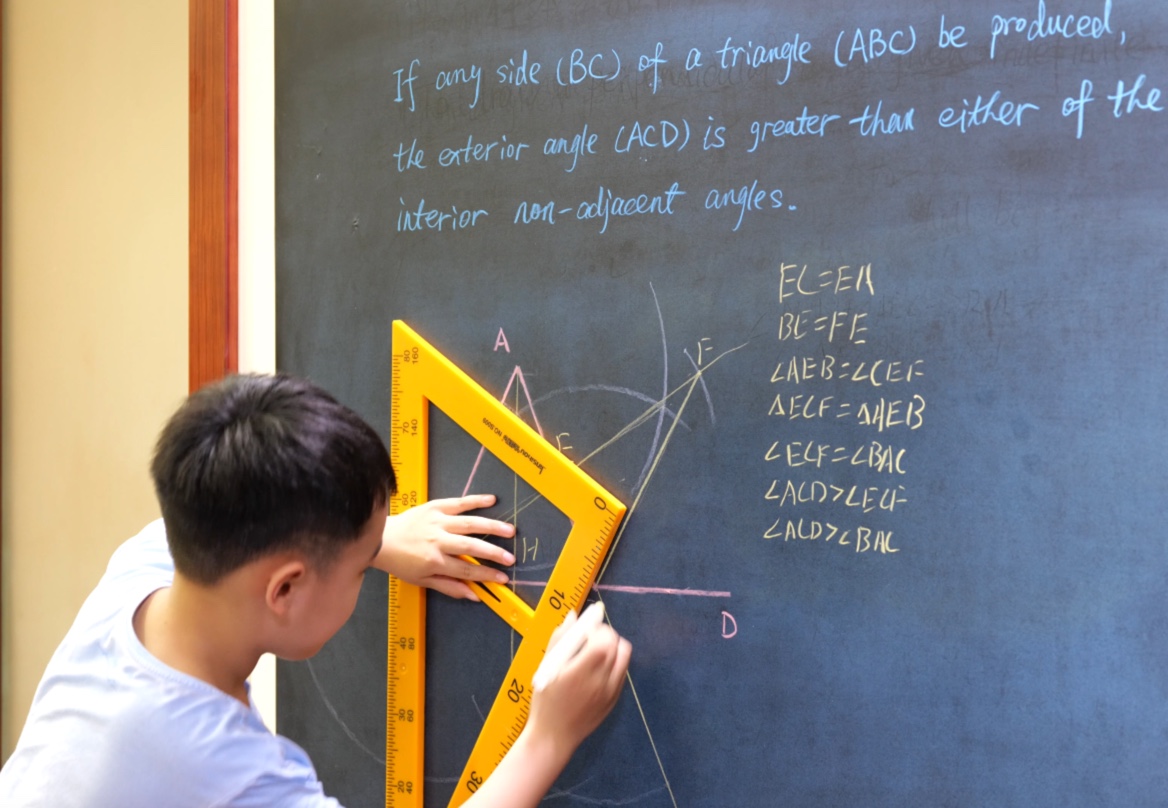 If any side (BC) of a triangle (ABC) be produced,
the exterior angle (ACD) is greater than either of the
interior non-adjacent angles.
EC=EA
BE=FE
∠AEB=∠CEF
△ECF=△AEB
∠ECF=∠BAC
∠ACD>∠ECF
∠ACD>∠BAC
A
F
E
H
D
80 160
70 140
60 120
40 80
30 60
20 40
0
10
20
30